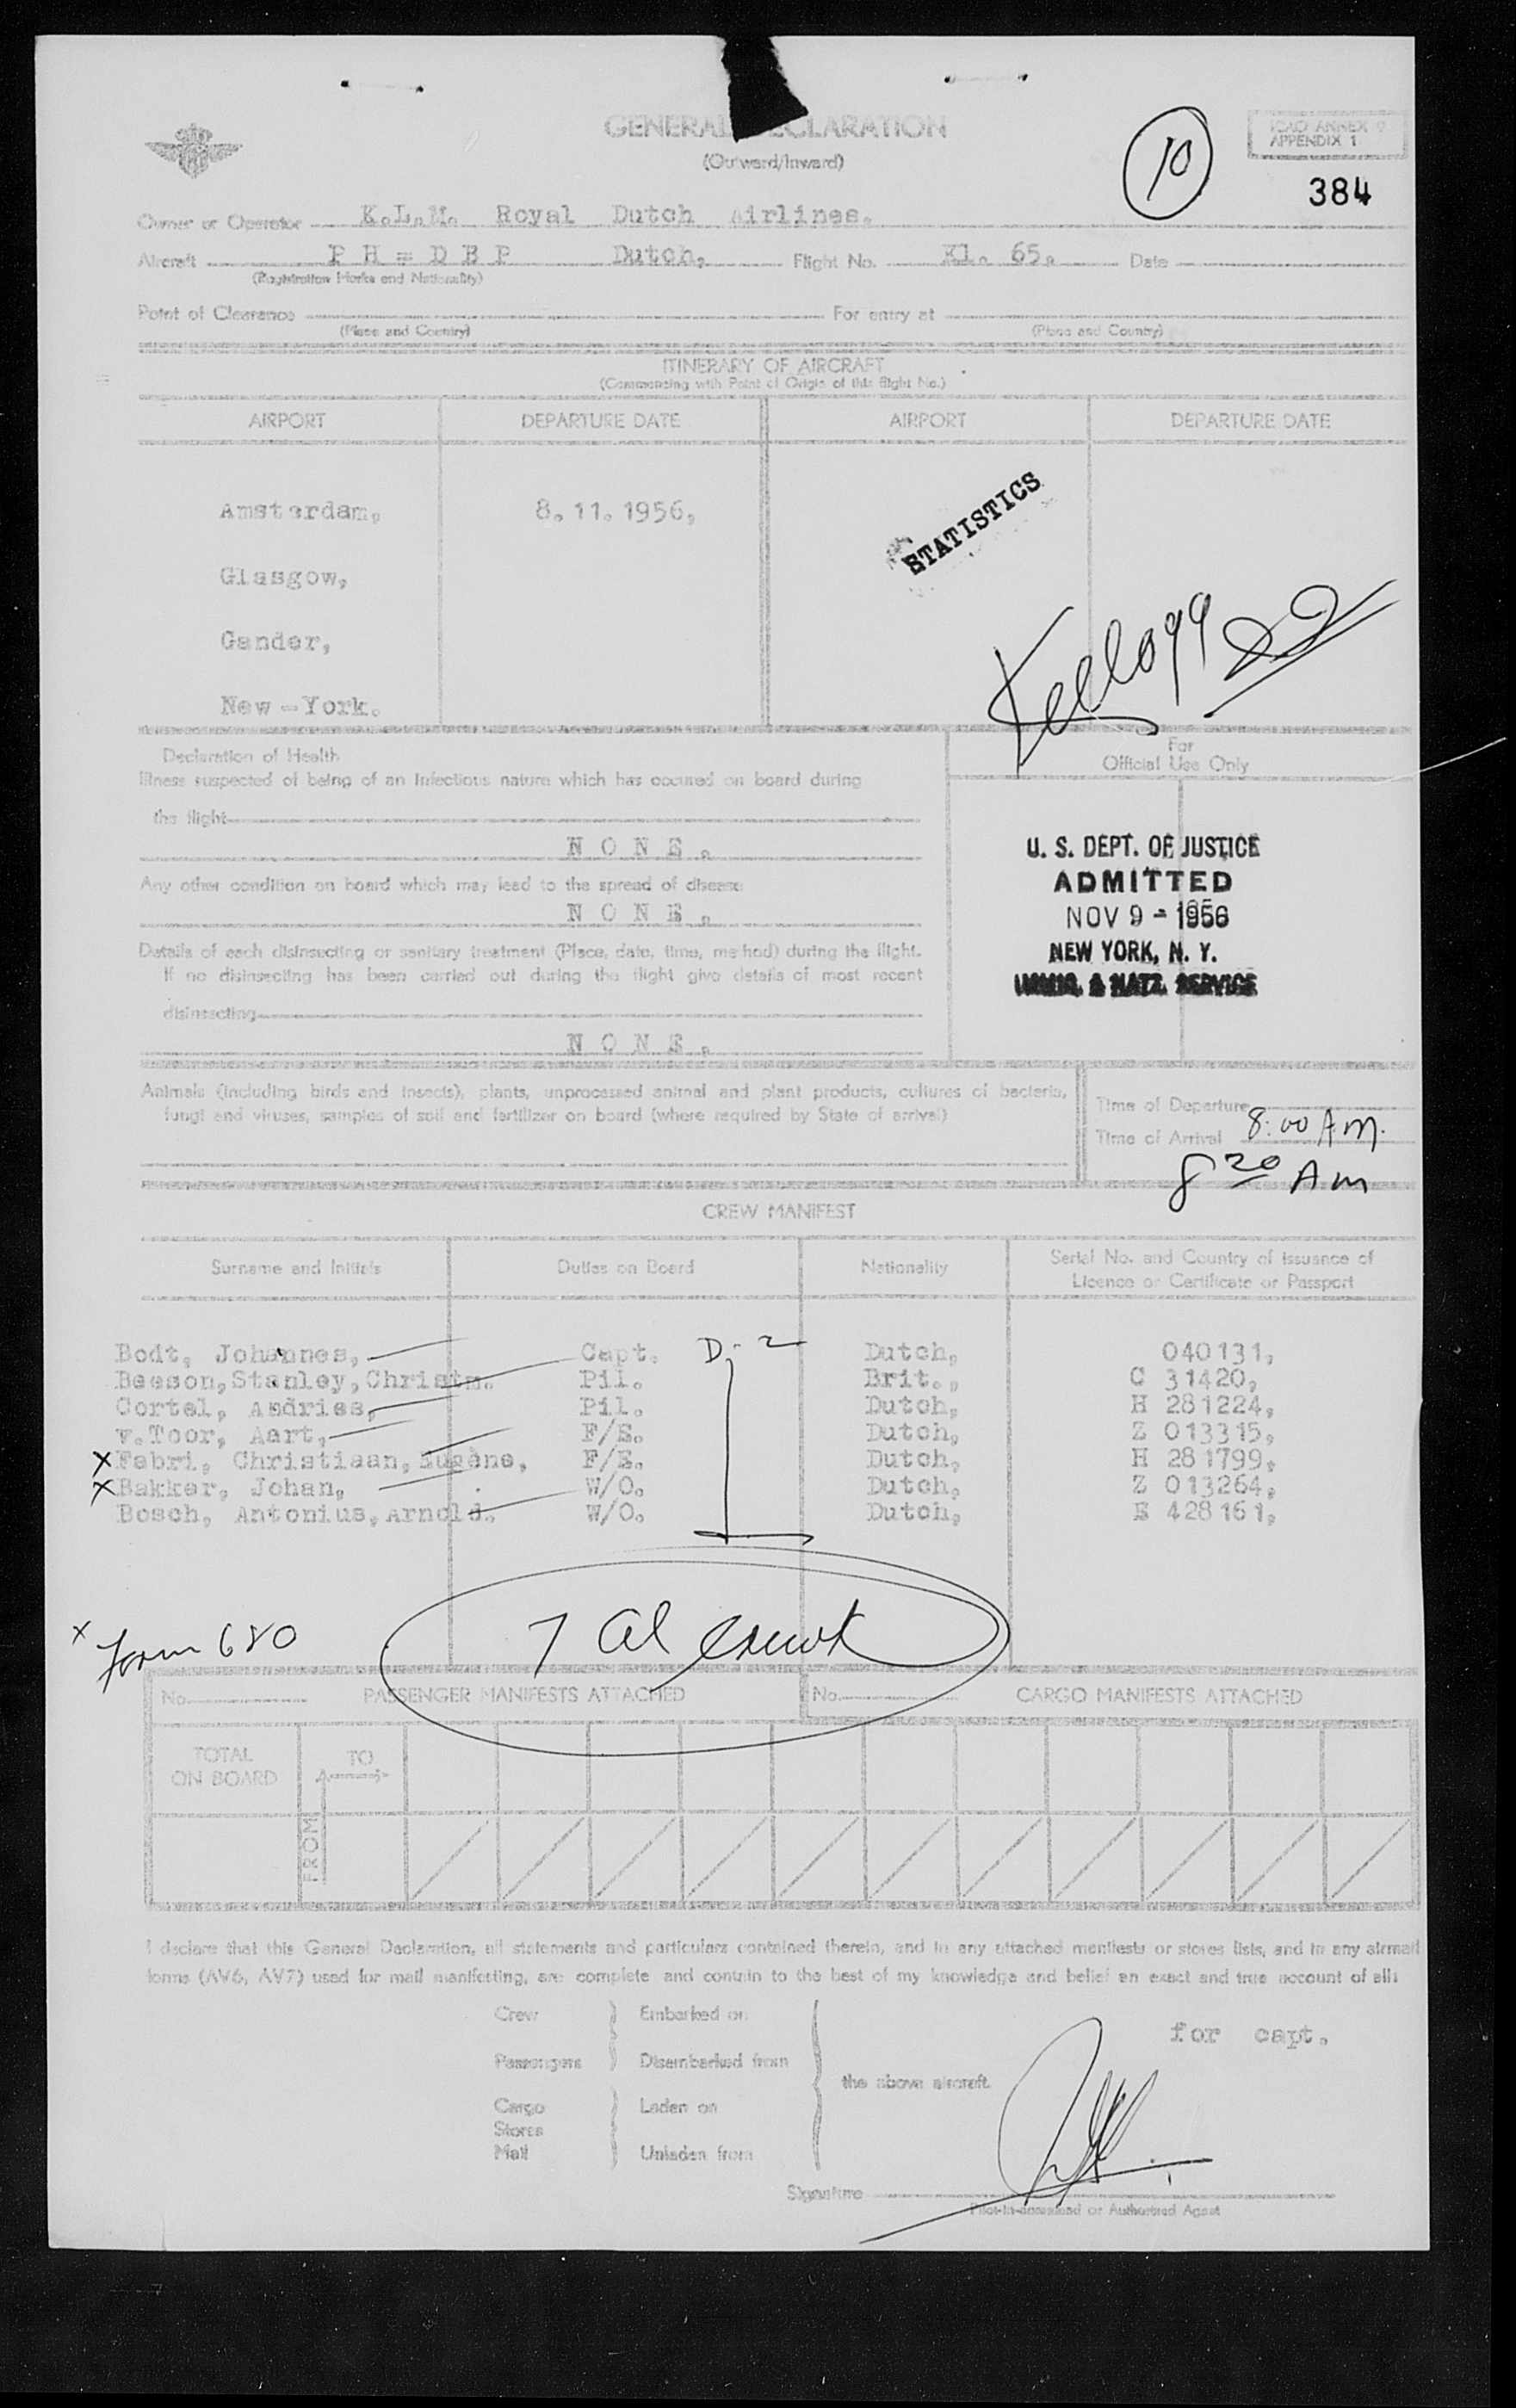 GENERAL DECLARATION
(Outward/Inward)
10
ICAO ANNEX 9
APPENDIX 1
384
Owner or Operator K.L.M. Royal Dutch Airlines.
Aircraft P H = D B P Dutch, Flight No. Kl. 65. Date
(Registration Marks and Nationality)
Point of Clearance For entry at
(Place and Country) (Place and Country)
ITINERARY OF AIRCRAFT
(Commencing with Point of Origin of this flight No.)
AIRPORT DEPARTURE DATE AIRPORT DEPARTURE DATE
STATISTICS
Amsterdam, 8.11.1956,
Glasgow,
Gander,
Kellogg 22
New-York.
Declaration of Health
Illness suspected of being of an infectious nature which has occured on board during
the flight
N O N E.
Any other condition on board which may lead to the spread of disease
N O N E.
Details of each disinsecting or sanitary treatment (Place, date, time, method) during the flight.
If no disinsecting has been carried out during the flight give details of most recent
disinsecting
N O N E.
For
Official Use Only
U. S. DEPT. OF JUSTICE
ADMITTED
NOV 9 - 1956
NEW YORK, N. Y.
IMMIG. & NATZ. SERVICE
Animals (including birds and insects), plants, unprocessed animal and plant products, cultures of bacteria,
fungi and viruses, samples of soil and fertilizer on board (where required by State of arrival)
Time of Departure
Time of Arrival 8:00 A.M.
8 20 AM
CREW MANIFEST
Surname and Initials Duties on Board Nationality Serial No. and Country of Issuance of
Licence or Certificate or Passport
Bodt, Johannes, Capt. D-2 Dutch, 040131,
Beeson,Stanley,Christm. Pil. Brit., C 31420,
Cortel, Andries, Pil. Dutch, H 281224,
v.Toor, Aart, F/E. Dutch, Z 013315,
X Fabri, Christiaan,Eugène, F/E. Dutch, H 281799,
X Bakker, Johan, W/O. Dutch, Z 013264,
Bosch, Antonius,Arnold. W/O. Dutch, E 428161,
x Form 680
7 al crew
No. PASSENGER MANIFESTS ATTACHED No. CARGO MANIFESTS ATTACHED
TOTAL
ON BOARD
TO
FROM
I declare that this General Declaration, all statements and particulars contained therein, and in any attached manifests or stores lists, and in any airmail
forms (AV6, AV7) used for mail manifesting, are complete and contain to the best of my knowledge and belief an exact and true account of all:
Crew Embarked on
for capt.
Passengers Disembarked from
the above aircraft.
Cargo Laden on
Stores
Mail Unladen from
Signature
Pilot-in-command or Authorised Agent